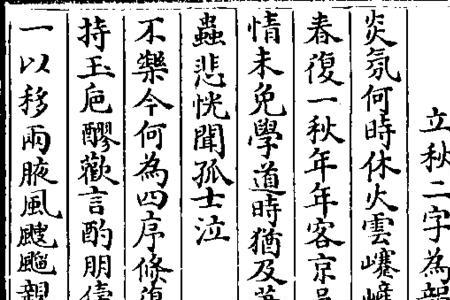 立秋二字為
炎氛何時休火雲
春復一秋年年客京
情未免學道時猶及
蟲悲恍聞孤士泣
不樂今何為四序倏復
持玉卮醪歡言酌朋
一以移兩腋風颼飀親